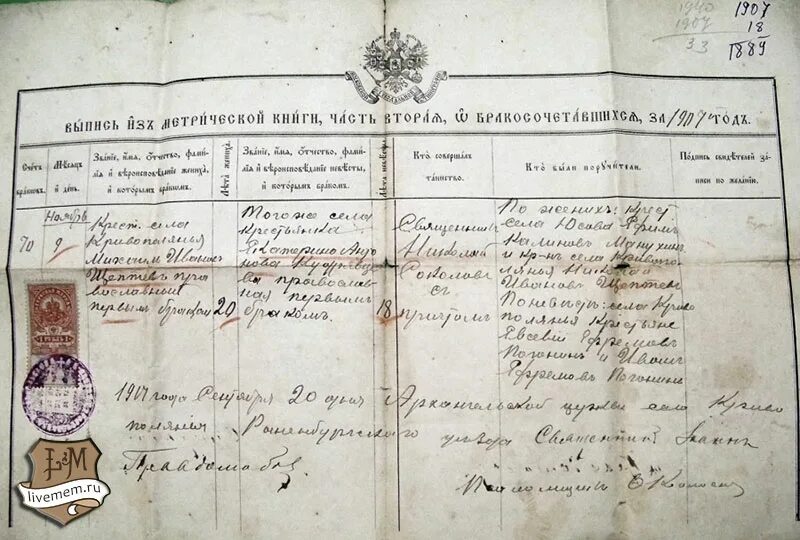 1940
1907
33
1907
18
1889
ВЫПИСЬ ИЗЪ МЕТРИЧЕСКОЙ КНИГИ, ЧАСТЬ ВТОРАЯ, Ѡ БРАКОСОЧЕТАВШИХСЯ, ЗА 1907 ГОДЪ.
Счетъ браковъ.
Мѣсяцъ и день.
Званіе, имя, отчество, фамилія и вѣроисповѣданіе жениха, и которымъ бракомъ.
Лѣта жениха.
Званіе, имя, отчество, фамилія и вѣроисповѣданіе невѣсты, и которымъ бракомъ.
Лѣта невѣсты.
Кто совершалъ таинство.
Кто были поручители.
Подпись свидѣтелей записи по желанію.
70
Ноябрь
9
Крест. села
Кривополянья
Максимъ Иванов
Щептев пра
вославный
первым браком
20
Того же села
крестьянка
Екатерина
православ
ная первым
браком
18
Священник
Николай
Соколов
съ
причтом
По женихѣ: крест
села Юсова Ефим
Каликов
и кр-нъ села Кривопо
лянья Николай
Иванов Щептев
По невѣстѣ: села Криво
полянья крестьяне
Евсевій Ефремов
и Иван
Ефремов
1907 года Сентября 20 дня Архангельской церкви села Криво
полянья Раненбургского уезда Священник Іоаннъ
Правдолюбов
Псаломщикъ
1 РУБ 1
L&M
livemem.ru